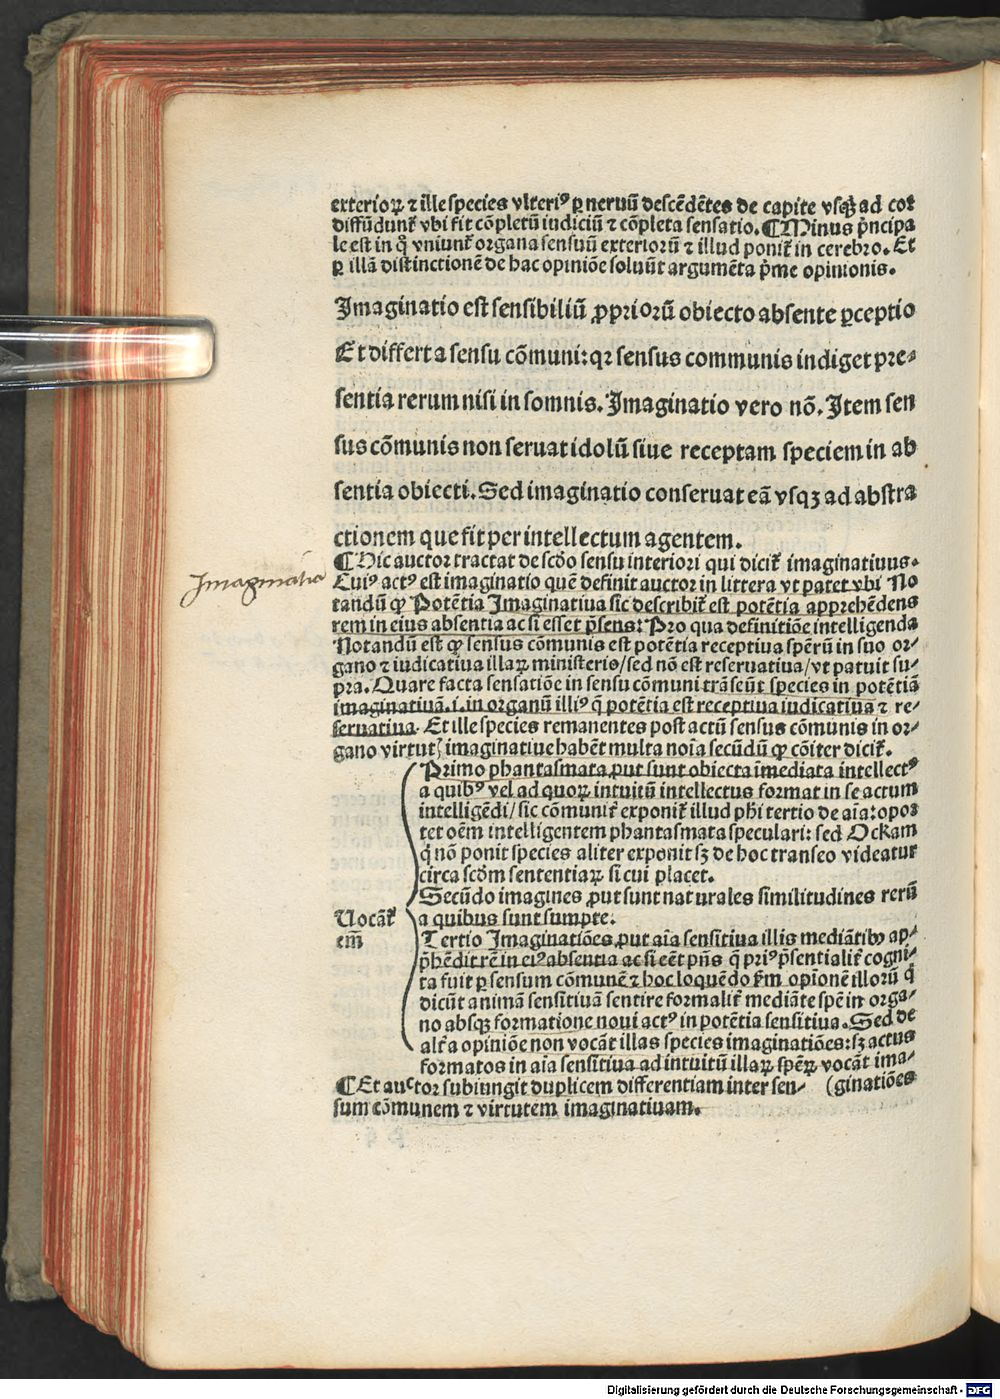 exterioꝝ ⁊ ille species vlteriꝰ ꝑ neruũ descẽdẽtes de capite vsqꝫ ad coꝛ
diffũdunt᷑ vbi fit cõpletũ iudiciũ ⁊ cõpleta sensatio. ¶Minus p̃ncipa
le est in q̃ vniunt᷑ organa sensuũ exteriorũ ⁊ illud ponit᷑ in cerebro. Et
ꝑ illã distinctionẽ de hac opiniõe soluũt argumẽta p̃me opinionis.
Imaginatio est sensibiliũ ꝓpriorũ obiecto absente ꝑceptio
Et differt a sensu cõmuni: qꝛ sensus communis indiget pre⸗
sentia rerum nisi in somnis. Imaginatio vero nõ. Item sen
sus cõmunis non seruat idolũ siue receptam speciem in ab
sentia obiecti. Sed imaginatio conseruat eã vsqꝫ ad abstra
ctionem que fit per intellectum agentem.
¶Hic auctor tractat de scd̃o sensu interiori qui dicit᷑ imaginatiuus.
Imaginatio
Cuiꝰ actꝰ est imaginatio quẽ definit auctor in littera vt patet vbi No
tandũ ꝙ Potẽtia Imaginatiua sic describit᷑ est potẽtia apprehẽdens
rem in eius absentia ac si esset p̃sens: Pro qua definitiõe intelligenda
Notandũ est ꝙ sensus cõmunis est potẽtia receptiua sperũ in suo or⸗
gano ⁊ iudicatiua illaꝝ ministeris/sed nõ est reseruatiua/vt patuit su⸗
pra. Quare facta sensatiõe in sensu cõmuni trãseũt species in potẽtiã
imaginatiuã.i.in organũ illiꝰ q̃ potẽtia est receptiua iudicatiua ⁊ re⸗
seruatiua. Et ille species remanentes post actũ sensus cõmunis in or⸗
gano virtutꝭ imaginatiue habẽt multa noĩa secũdũ ꝙ cõiter dicit᷑.
Primo phantasmata ꝓut sunt obiecta ĩmediata intellectꝰ
a quibꝰ vel ad quoꝝ intuitũ intellectus format in se actum
intelligẽdi/sic cõmunit᷑ exponit᷑ illud phi tertio de aĩa: opoꝛ
tet oẽm intelligentem phantasmata speculari: sed Ockam
q̃ nõ ponit species aliter exponit sꝫ de hoc transeo videatur
circa scd̃m sententiaꝝ si cui placet.
Secũdo imagines ꝓut sunt naturales similitudines rerũ
Uocãt᷑ a quibus sunt sumpte.
em̃ Tertio Imaginatiões ꝓut aĩa sensitiua illis mediãtibꝰ ap⸗
p̃hẽdit rẽ in eiꝰ absentia ac si eẽt p̃ñs q̃ priꝰ p̃sentialit᷑ cogni⸗
ta fuit ꝑ sensum cõmunẽ ⁊ hoc loquẽdo ẜm opionẽ illorũ q̃
dicũt animã sensitiuã sentire formalit᷑ mediãte spẽ in orga⸗
no absqꝫ formatione noui actꝰ in potẽtia sensitiua. Sed de
alt᷑a opiniõe non vocãt illas species imaginatiões: sꝫ actus
formatos in aĩa sensitiua ad intuitũ illaꝝ spẽꝝ vocãt ima⸗
¶Et auctor subiungit duplicem differentiam inter sen⸗ (ginatiões
sum cõmunem ⁊ virtutem imaginatiuam.
Digitalisierung gefördert durch die Deutsche Forschungsgemeinschaft - DFG